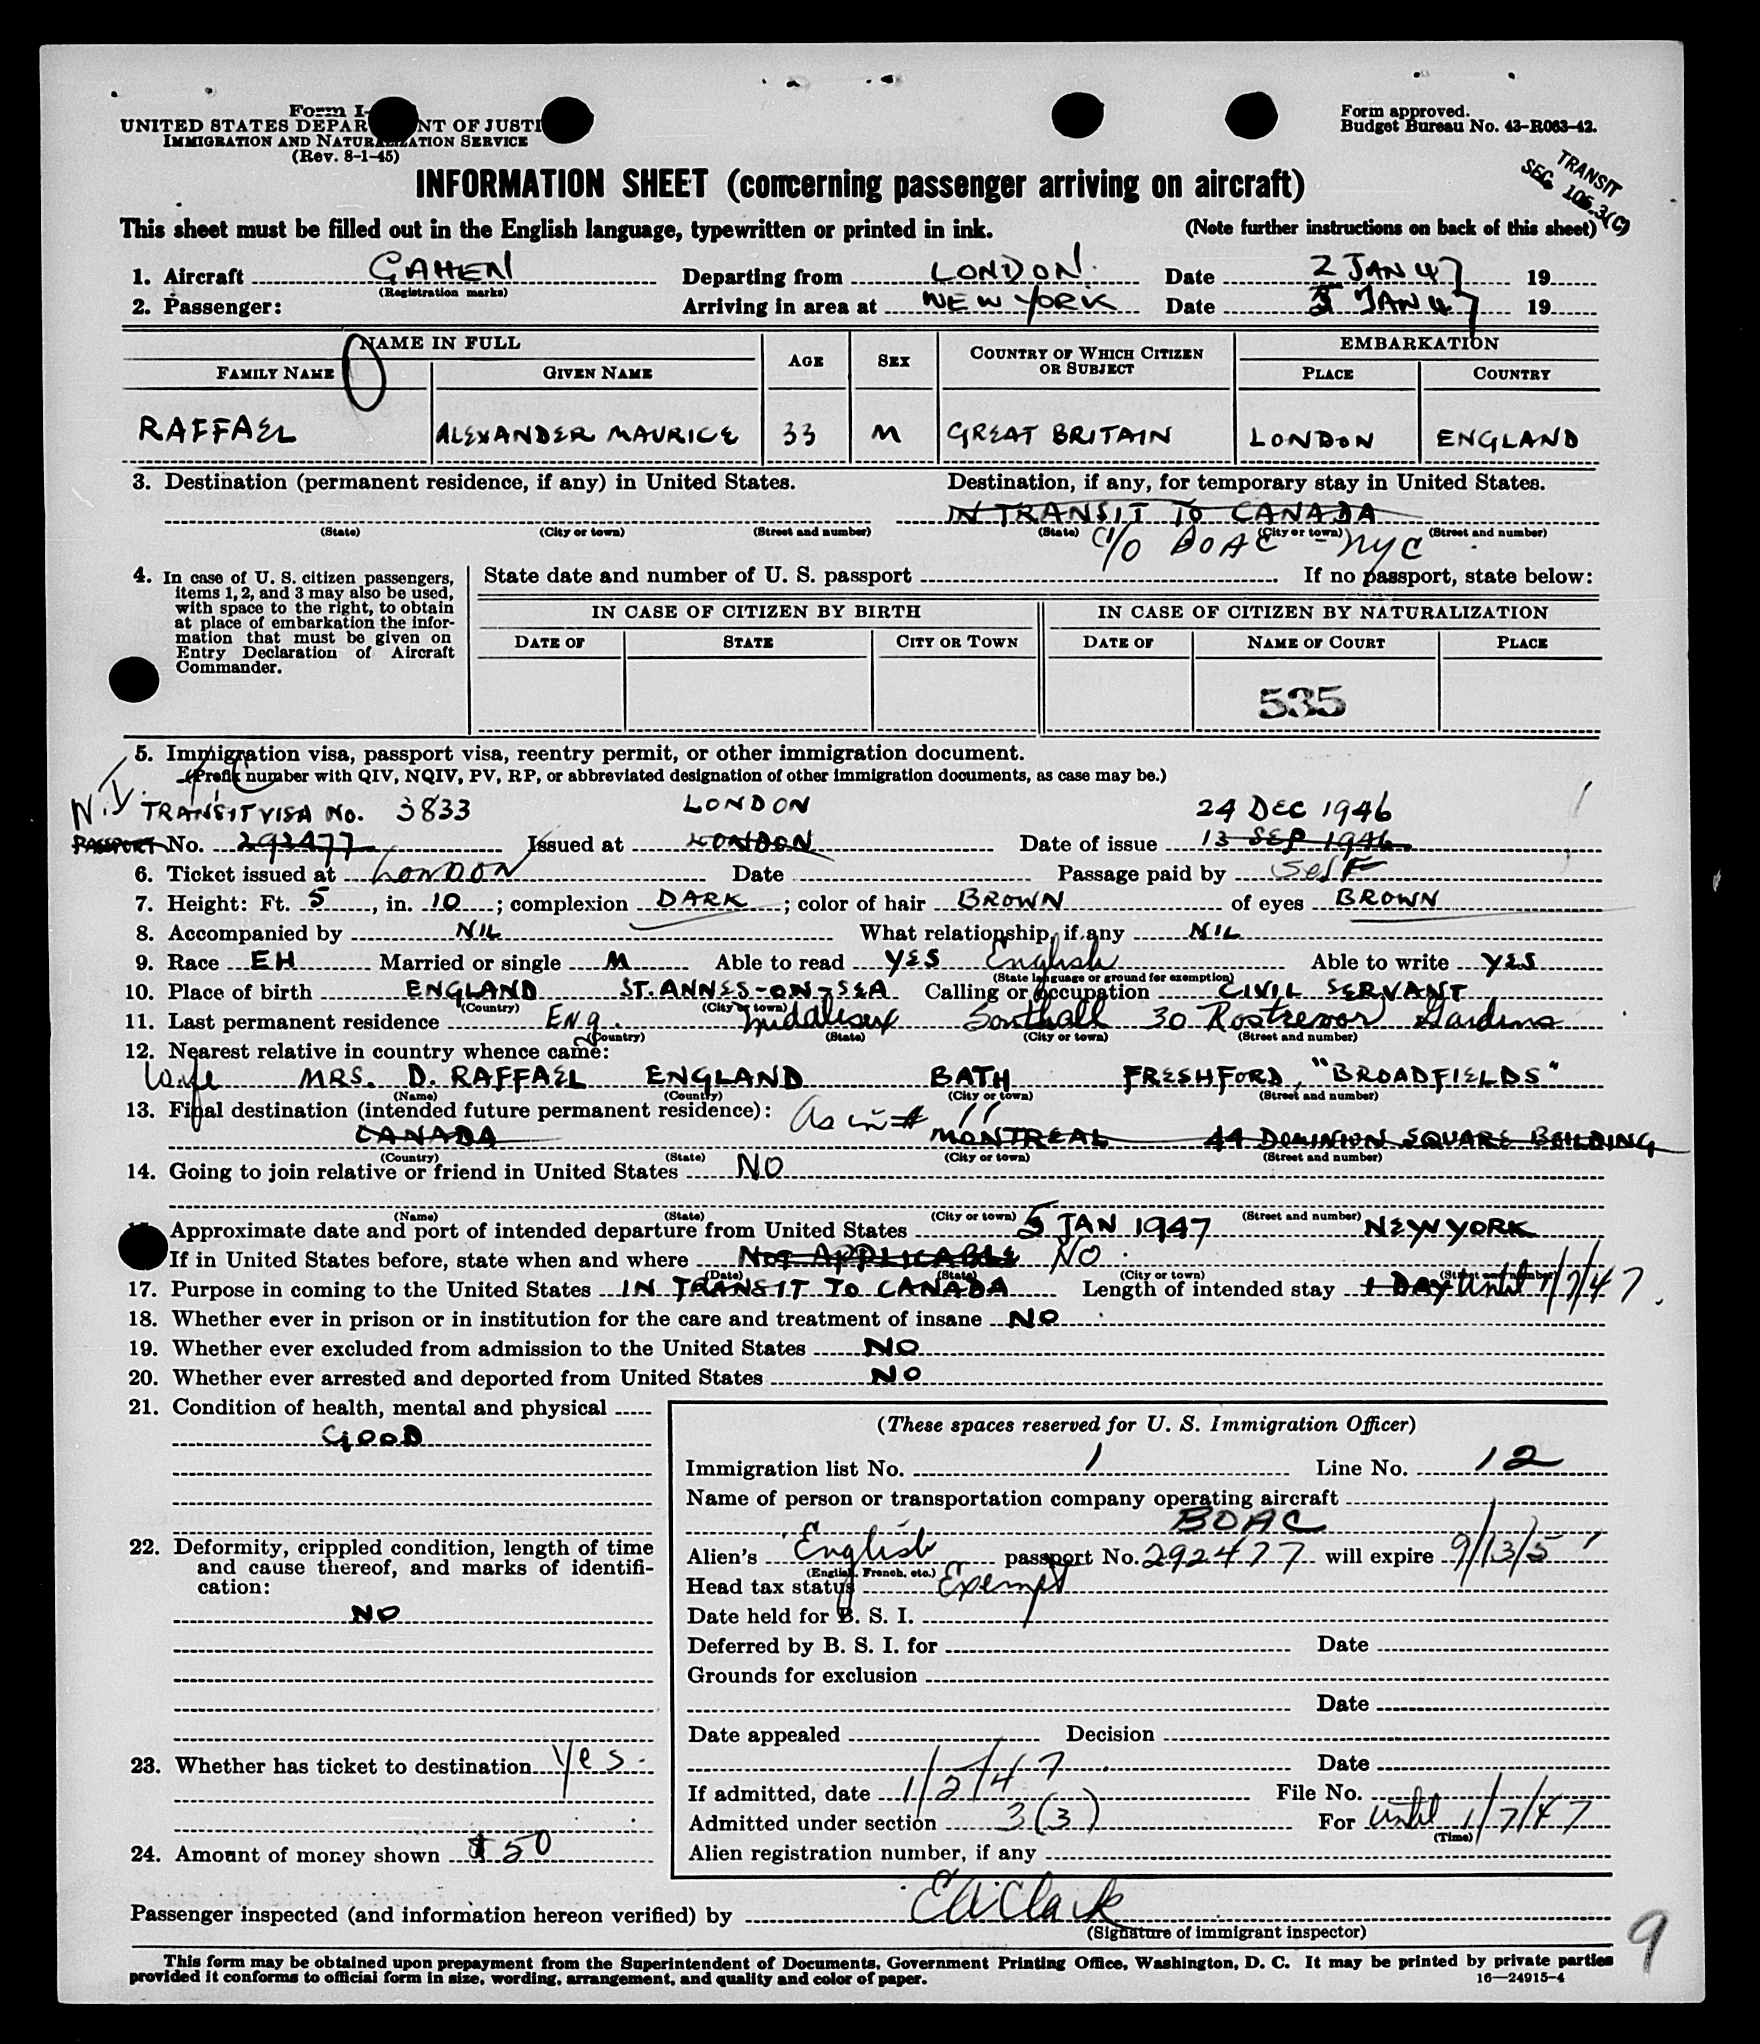 Form I-
UNITED STATES DEPAR NT OF JUSTI
IMMIGRATION AND NATURALIZATION SERVICE
(Rev. 8-1-45)
Form approved.
Budget Bureau No. 43-R063-42.
TRANSIT
SEC. 105.3(C)
INFORMATION SHEET (concerning passenger arriving on aircraft)
This sheet must be filled out in the English language, typewritten or printed in ink. (Note further instructions on back of this sheet)
1. Aircraft GAHEN Departing from LONDON Date 2 JAN 47 19
(Registration marks)
2. Passenger: Arriving in area at NEW YORK Date 3 JAN 47 19
NAME IN FULL AGE SEX COUNTRY OF WHICH CITIZEN OR SUBJECT EMBARKATION
FAMILY NAME GIVEN NAME PLACE COUNTRY
RAFFAEL ALEXANDER MAURICE 33 M GREAT BRITAIN LONDON ENGLAND
3. Destination (permanent residence, if any) in United States. Destination, if any, for temporary stay in United States.
IN TRANSIT TO CANADA
(State) (City or town) (Street and number) (State) (City or town) (Street and number)
C/O BOAC - NYC
4. In case of U. S. citizen passengers, items 1, 2, and 3 may also be used, with space to the right, to obtain at place of embarkation the information that must be given on Entry Declaration of Aircraft Commander.
State date and number of U. S. passport If no passport, state below:
IN CASE OF CITIZEN BY BIRTH IN CASE OF CITIZEN BY NATURALIZATION
DATE OF STATE CITY OR TOWN DATE OF NAME OF COURT PLACE
535
5. Immigration visa, passport visa, reentry permit, or other immigration document.
(Prefix number with QIV, NQIV, PV, RP, or abbreviated designation of other immigration documents, as case may be.)
N.Y. TRANSIT VISA No. 3833 LONDON 24 DEC 1946
PASSPORT No. 292477 Issued at LONDON Date of issue 13 SEP 1946
6. Ticket issued at London Date Passage paid by Self
7. Height: Ft. 5, in. 10; complexion DARK; color of hair BROWN of eyes BROWN
8. Accompanied by NIL What relationship, if any NIL
9. Race EH Married or single M Able to read YES English Able to write YES
(State language or ground for exemption)
10. Place of birth ENGLAND ST. ANNES-ON-SEA Calling or occupation CIVIL SERVANT
(Country) (City or town)
11. Last permanent residence Eng. Middlesex Southall 30 Rostrevor Gardens
(Country) (State) (City or town) (Street and number)
12. Nearest relative in country whence came:
Wife MRS. D. RAFFAEL ENGLAND BATH FRESHFORD, "BROADFIELDS"
(Name) (Country) (City or town) (Street and number)
13. Final destination (intended future permanent residence): As in # 11
CANADA MONTREAL 44 DOMINION SQUARE BUILDING
(Country) (State) (City or town) (Street and number)
14. Going to join relative or friend in United States NO
(Name) (State) (City or town) (Street and number)
Approximate date and port of intended departure from United States 5 JAN 1947 NEW YORK
If in United States before, state when and where NOT APPLICABLE NO
(Date) (State) (City or town) (Street and number)
17. Purpose in coming to the United States IN TRANSIT TO CANADA Length of intended stay 1 DAY until 1/7/47
18. Whether ever in prison or in institution for the care and treatment of insane NO
19. Whether ever excluded from admission to the United States NO
20. Whether ever arrested and deported from United States NO
21. Condition of health, mental and physical
GOOD
22. Deformity, crippled condition, length of time and cause thereof, and marks of identification:
NO
23. Whether has ticket to destination Yes
24. Amount of money shown $50
(These spaces reserved for U. S. Immigration Officer)
Immigration list No. 1 Line No. 12
Name of person or transportation company operating aircraft
BOAC
Alien's English passport No. 292477 will expire 9/13/51
(English, French, etc.)
Head tax status Exempt
Date held for B. S. I.
Deferred by B. S. I. for Date
Grounds for exclusion
Date
Date appealed Decision
Date
If admitted, date 1/2/47 File No.
Admitted under section 3(3) For until 1/7/47
(Time)
Alien registration number, if any
Passenger inspected (and information hereon verified) by E A Clark
(Signature of immigrant inspector)
9
This form may be obtained upon prepayment from the Superintendent of Documents, Government Printing Office, Washington, D. C. It may be printed by private parties
provided it conforms to official form in size, wording, arrangement, and quality and color of paper.
16—24915-4